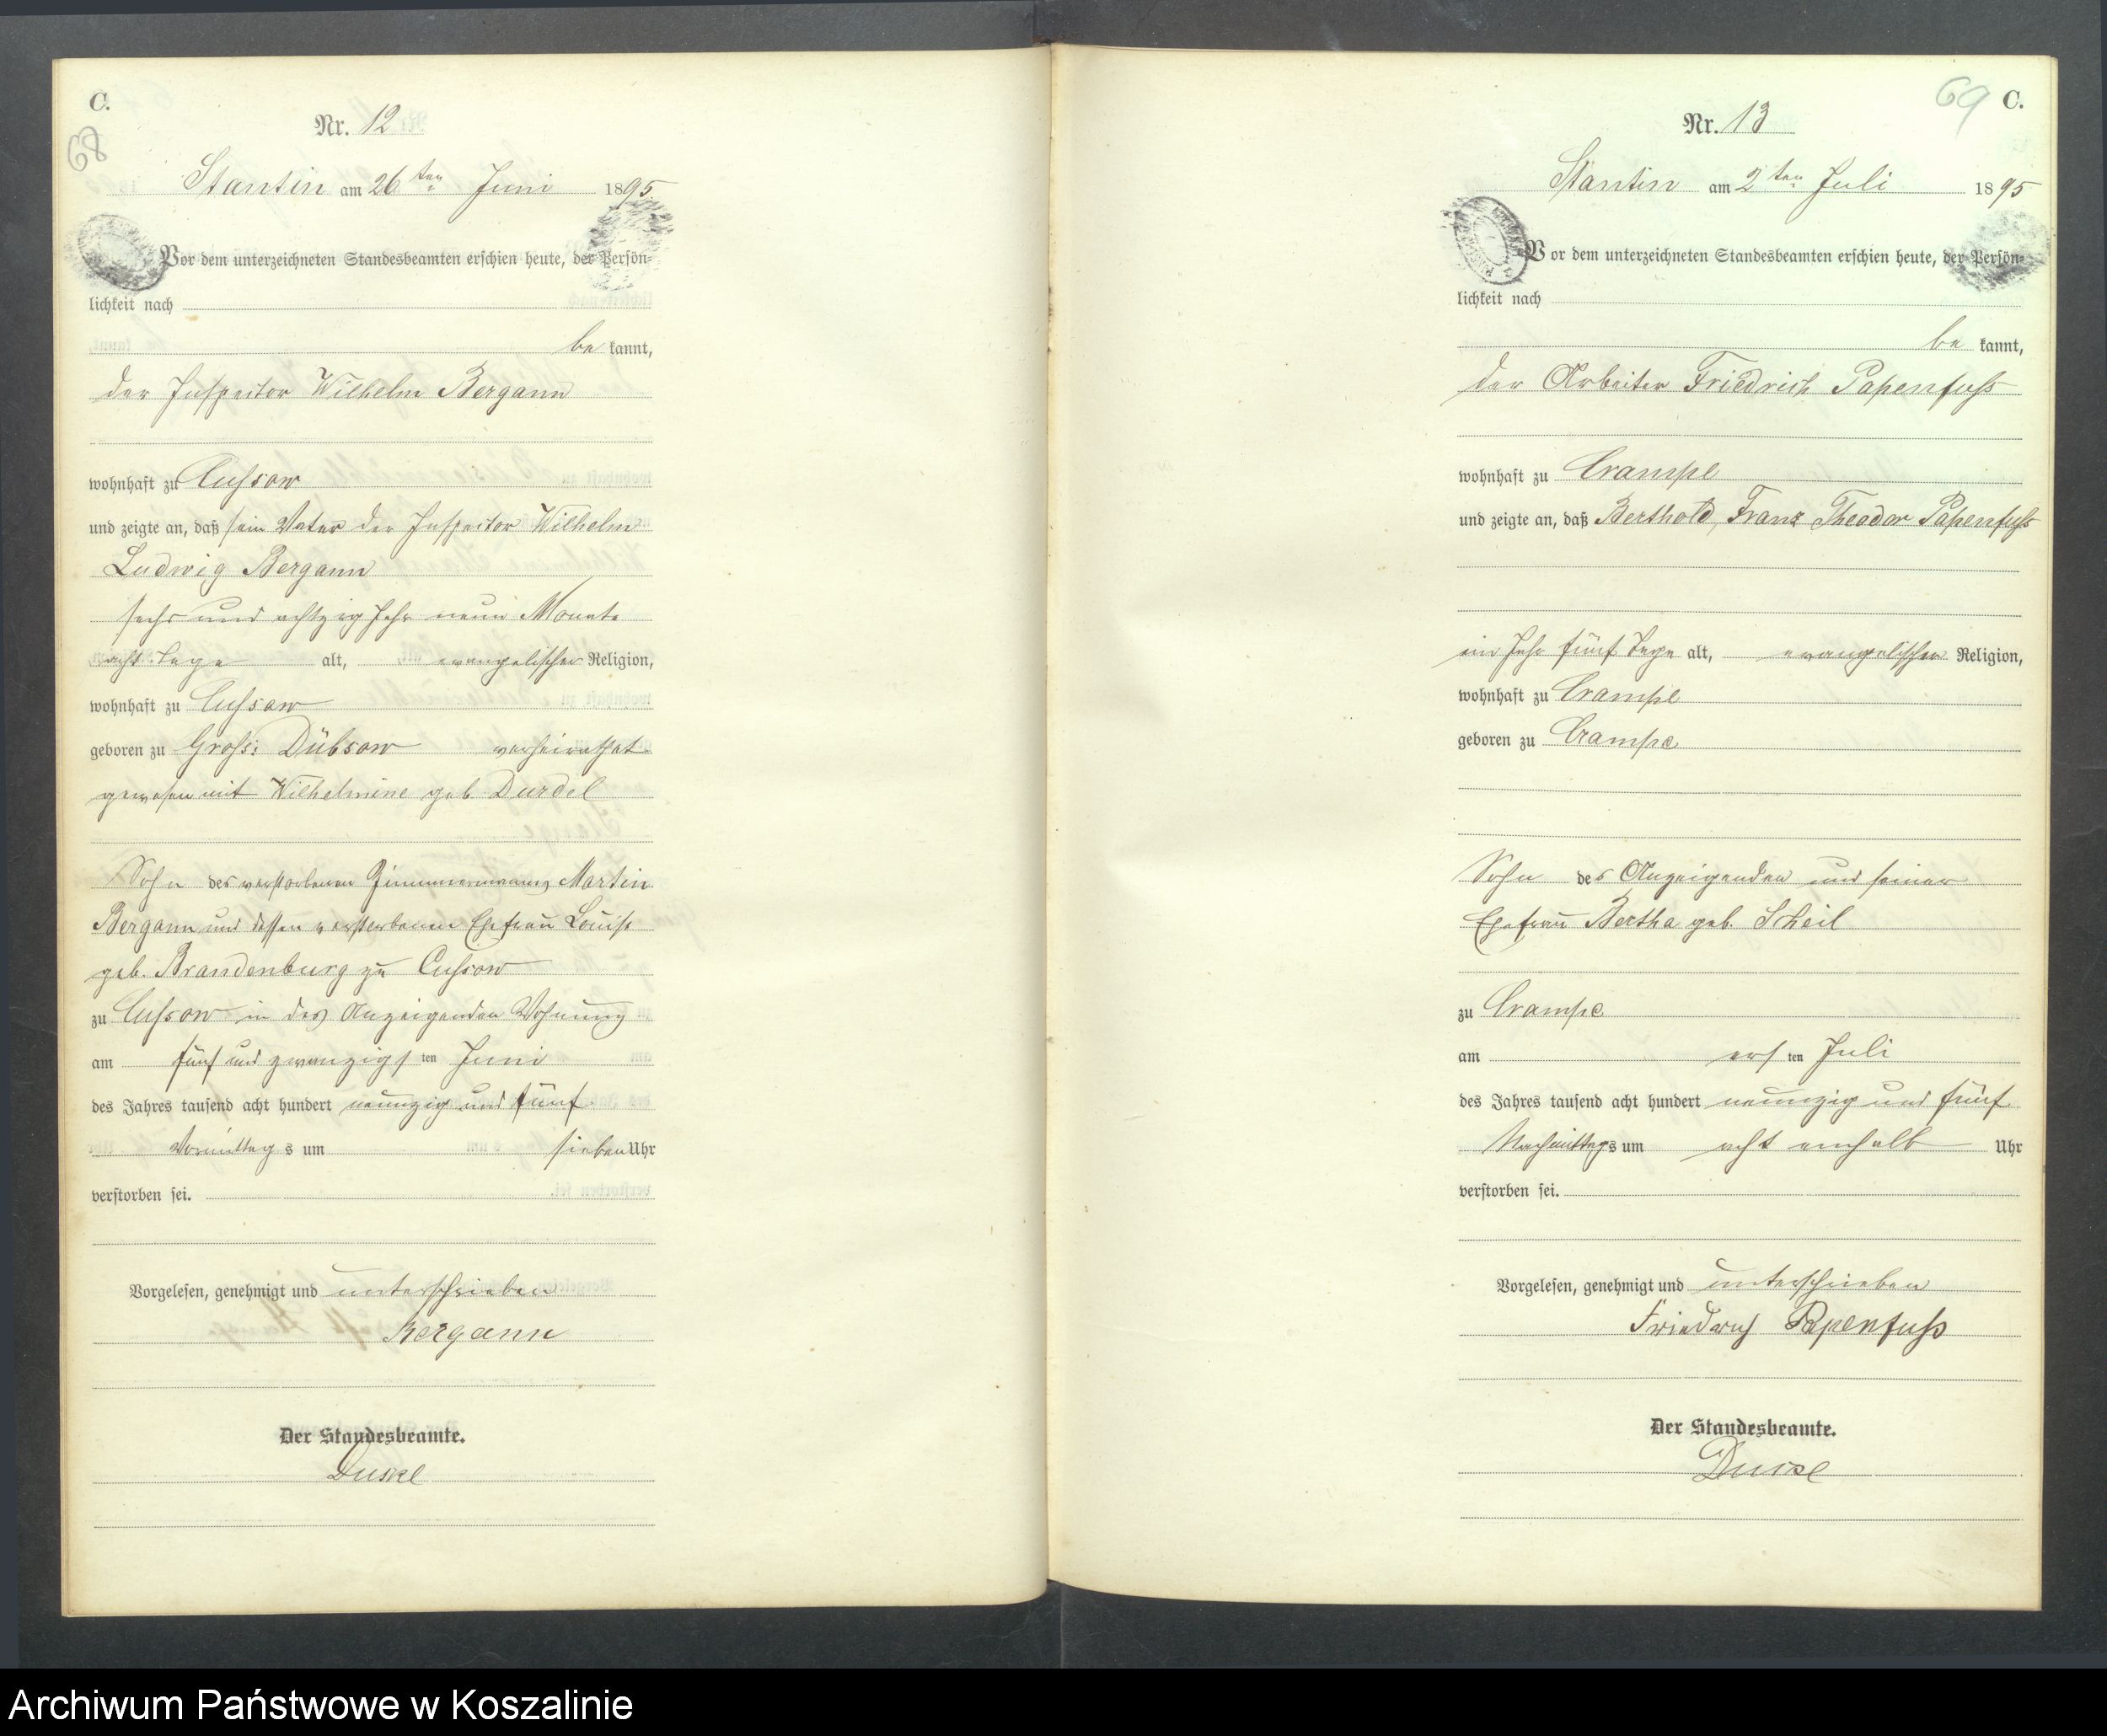 C.
68
Nr. 12
Stantin am 26ten Juni 1895
Vor dem unterzeichneten Standesbeamten erschien heute, der Persön-
lichkeit nach
be kannt,
der Inspector Wilhelm Bergann
wohnhaft zu Cussow
und zeigte an, daß sein Vater der Inspector Wilhelm
Ludwig Bergann
sechs und achtzig Jahr neun Monate
acht Tage alt, evangelischer Religion,
wohnhaft zu Cussow
geboren zu Gross: Dübsow verheirathet
gewesen mit Wilhelmine geb. Durdel
Sohn des verstorbenen Zimmermanns Martin
Bergann und dessen verstorbenen Ehefrau Louise
geb. Brandenburg zu Cussow
zu Cussow in des Anzeigenden Wohnung
am fünf und zwanzigsten Juni
des Jahres tausend acht hundert neunzig und fünf
Vormittags um sieben Uhr
verstorben sei.
Vorgelesen, genehmigt und unterschrieben
Bergann
Der Standesbeamte.
69 C.
Nr. 13
Stantin am 2ten Juli 1895
Vor dem unterzeichneten Standesbeamten erschien heute, der Persön-
lichkeit nach
be kannt,
der Arbeiter Friedrich Papenfuss
wohnhaft zu Crampe
und zeigte an, daß Berthold, Franz Theodor Papenfuss
ein Jahr fünf Tage alt, evangelischer Religion,
wohnhaft zu Crampe
geboren zu Crampe
Sohn des Anzeigenden und seiner
Ehefrau Bertha geb. Scheil
zu Crampe
am ersten Juli
des Jahres tausend acht hundert neunzig und fünf
Nachmittags um acht einhalb Uhr
verstorben sei.
Vorgelesen, genehmigt und unterschrieben
Friedrich Papenfuß
Der Standesbeamte.
Archiwum Państwowe w Koszalinie